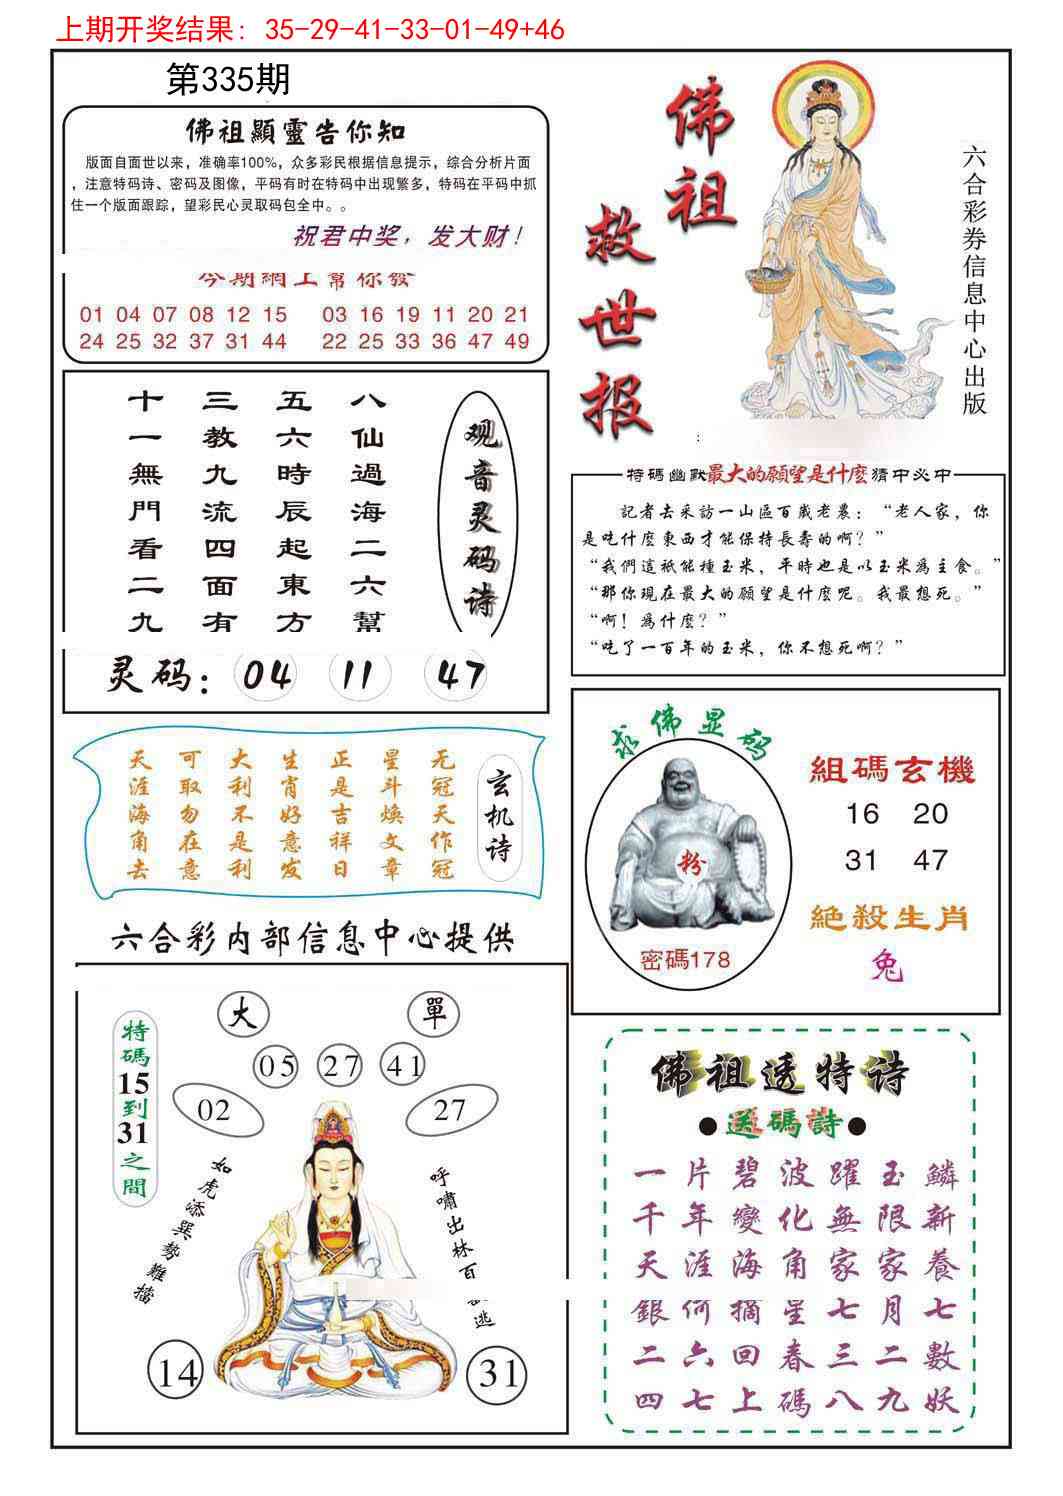 上期开奖结果: 35-29-41-33-01-49+46
第335期
佛祖顯靈告你知
版面自面世以来，准确率100%，众多彩民根据信息提示，综合分析片面
，注意特码诗、密码及图像，平码有时在特码中出现繁多，特码在平码中抓
住一个版面跟踪，望彩民心灵取码包全中。。
祝君中奖，发大财！
今期網上幫你發
01 04 07 08 12 15 03 16 19 11 20 21
24 25 32 37 31 44 22 25 33 36 47 49
佛祖
救世报
六合彩券信息中心出版
观音灵码诗
八仙過海二六幫
五六時辰起東方
三教九流四面有
十一無門看二九
灵码：04 11 47
特碼幽默最大的願望是什麽猜中必中
記者去采訪一山區百歲老農：“老人家，你
是吃什麽東西才能保持長壽的啊？”
“我們這祇能種玉米，平時也是以玉米爲主食。”
“那你現在最大的願望是什麽呢。我最想死。”
“啊！爲什麽？”
“吃了一百年的玉米，你不想死啊？”
玄机诗
无冠天作冠
星斗焕文章
正是吉祥日
生肖好意发
大利不是利
可取勿在意
天涯海角去
求佛显码
粉
密碼178
組碼玄機
16 20
31 47
絕殺生肖
兔
六合彩内部信息中心提供
特碼15到31之間
大 單
05 27 41
02 27
如虎添異勢難擋
呼嘯出林百逃
14 31
佛祖透特诗
●送碼詩●
一片碧波躍玉鱗
千年變化無限新
天涯海角家家養
銀何摘星七月七
二六回春三二數
四七上碼八九妖